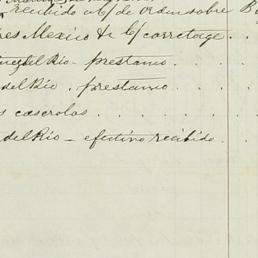 recibido a/c/ de orden sobre B
res Mexico & c/ corretage . .
del Rio - prestamo . .
del Rio . prestamo . .
s caserolas . . . . . . .
del Rio - efectivo recibido . .